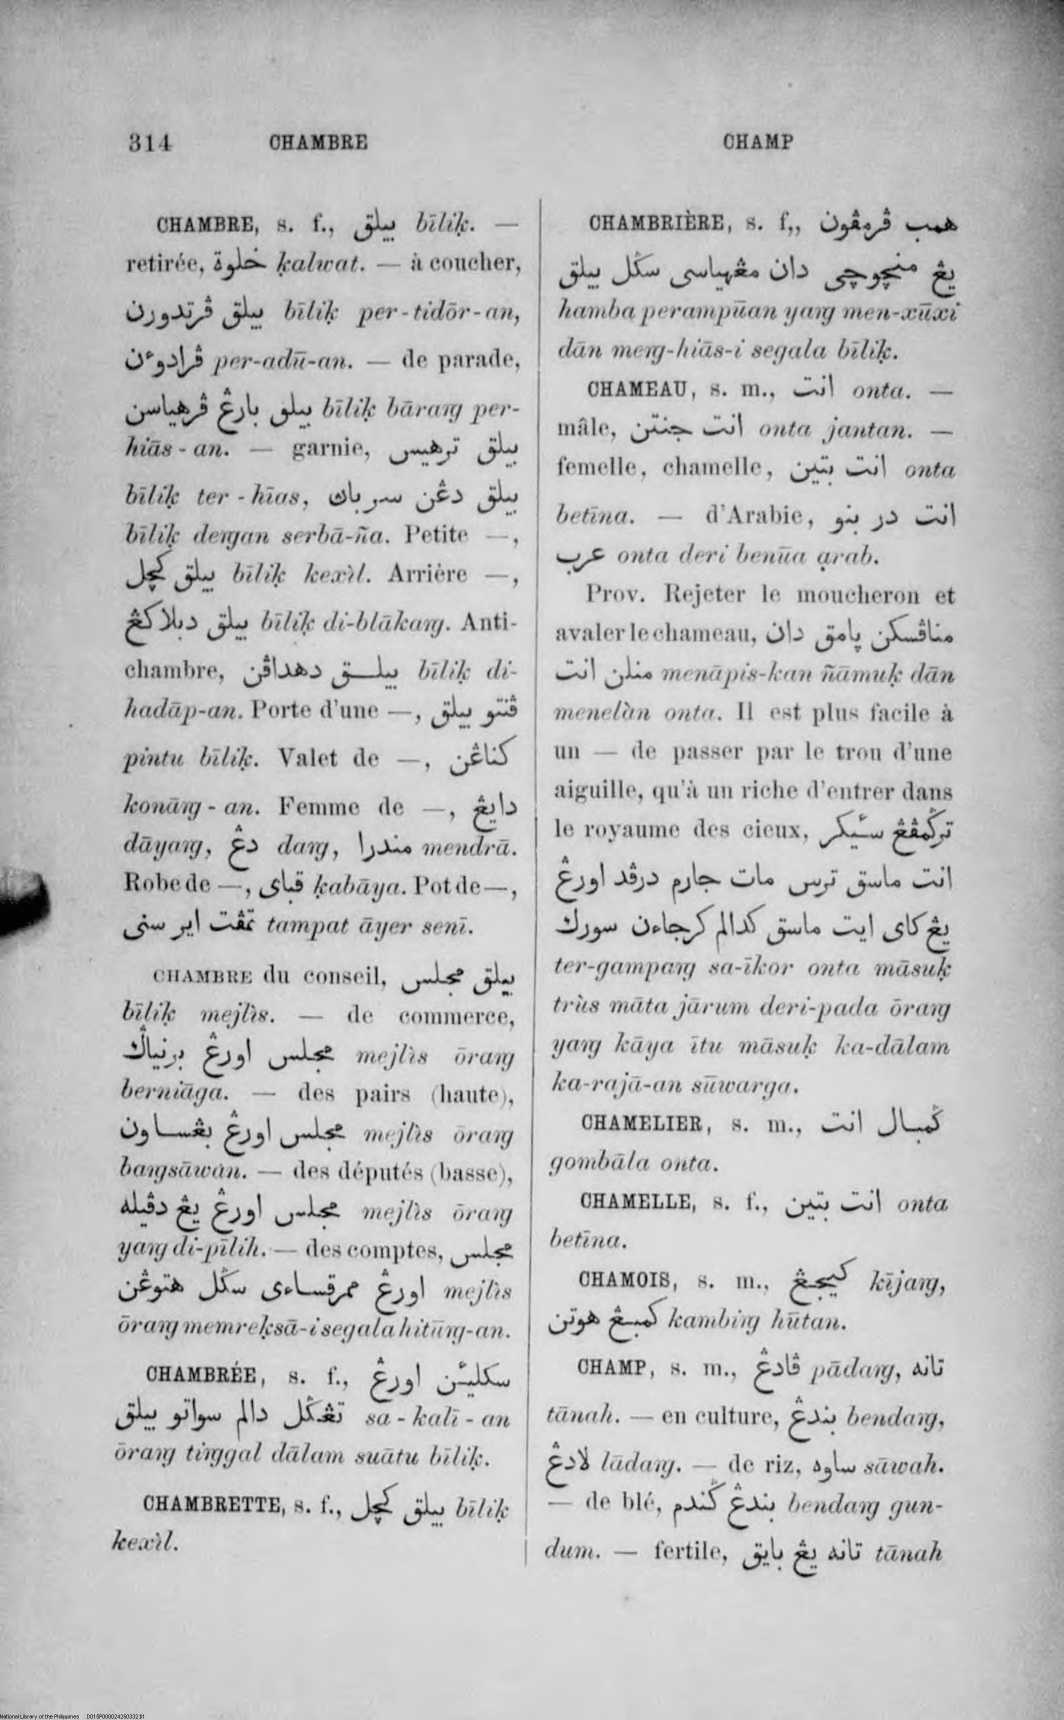 314 CHAMBRE CHAMP
CHAMBRE, s. f., بيلق bīliḳ. —
retirée, خلوة ḳalwat. — à coucher,
بيلق ڤرتدورن bīliḳ per-tidōr-an,
ڤرادوءن per-adū-an. — de parade,
بيلق بارڠ ڤرهياسن bīliḳ bāraŋ per-
hiās-an. — garnie, بيلق ترهيس
bīliḳ ter-hīas, بيلق دڠن سرباڽ
bīliḳ deŋan serbā-ña. Petite —,
بيلق كچل bīliḳ kexìl. Arrière —,
بيلق دبلاكڠ bīliḳ di-blākaŋ. Anti-
chambre, بيلق دهداڤن bīliḳ di-
hadāp-an. Porte d'une —, ڤنتو بيلق
pintu bīliḳ. Valet de —, كناڠن
konāŋ-an. Femme de —, دايڠ
dāyaŋ, دڠ daŋ, مندرا mendrā.
Robe de —, قباي ḳabāya. Pot de —,
تمڤت اير سني tampat āyer senī.
CHAMBRE du conseil, بيلق مجلس
bīliḳ mejlìs. — de commerce,
مجلس اورڠ برنياݢ mejlìs ōraŋ
berniāga. — des pairs (haute),
مجلس اورڠ بڠساون mejlìs ōraŋ
baŋsāwàn. — des députés (basse),
مجلس اورڠ يڠ دڤيله mejlìs ōraŋ
yaŋ di-pīlih. — des comptes, مجلس
اورڠ ممرقساءي سݢل هتوڠن mejlìs
ōraŋ memreḳsā-i segala hitūŋ-an.
CHAMBRÉE, s. f., سكلين اورڠ
تڠݢل دالم سواتو بيلق sa-kalī-an
ōraŋ tiŋgal dālam suātu bīliḳ.
CHAMBRETTE, s. f., بيلق كچل bīliḳ
kexìl.
CHAMBRIÈRE, s. f,, همب ڤرمڤون
يڠ منچوچي دان مڠهياسي سݢل بيلق
hamba perampūan yaŋ men-xūxi
dān meŋ-hiās-i segala bīliḳ.
CHAMEAU, s. m., انت onta. —
mâle, انت جنتن onta jantan. —
femelle, chamelle, انت بتين onta
betīna. — d'Arabie, انت در بنو
عرب onta deri benūa ạrab.
Prov. Rejeter le moucheron et
avaler le chameau, مناڤسكن ڽامق دان
منلن انت menāpis-kan ñāmuḳ dān
menelàn onta. Il est plus facile à
un — de passer par le trou d'une
aiguille, qu'à un riche d'entrer dans
le royaume des cieux, ترݢمڤڠ سئيكر
انت ماسق ترس مات جارم درڤد اورڠ
يڠ كاي ايت ماسق كدالم كرجاءن سورݢ
ter-gampaŋ sa-īkor onta māsuḳ
trùs māta jārum deri-pada ōraŋ
yaŋ kāya ītu māsuḳ ka-dālam
ka-rajā-an sūwarga.
CHAMELIER, s. m., ݢمبال انت
gombāla onta.
CHAMELLE, s. f., انت بتين onta
betīna.
CHAMOIS, s. m., كيجڠ kījaŋ,
كمبڠ هوتن kambiŋ hūtan.
CHAMP, s. m., ڤادڠ pādaŋ, تانه
tānah. — en culture, بندڠ bendaŋ,
لادڠ lādaŋ. — de riz, ساوه sāwah.
— de blé, بندڠ ݢندم bendaŋ gun-
dum. — fertile, تانه يڠ بايق tānah
National Library of the Philippines